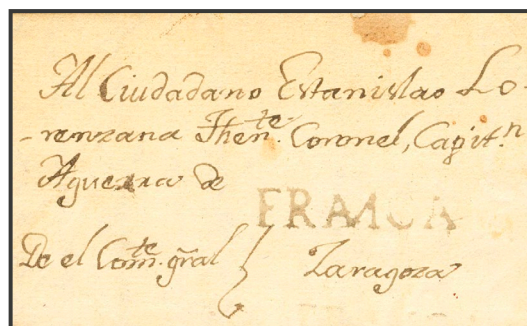 Al Ciudadano Estanislao Lo-
-renzana Thente. Coronel, Capitn.
Aguerra de
FRANCA
De el Comte. gral Zaragoza